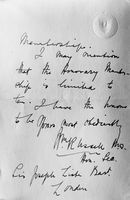 Membership.
I may mention
that the Honorary Member-
ship is limited to
ten. I have the honor
to be Yours most obediently
Hon. Sec.
Sir Joseph Lister Bart.
London